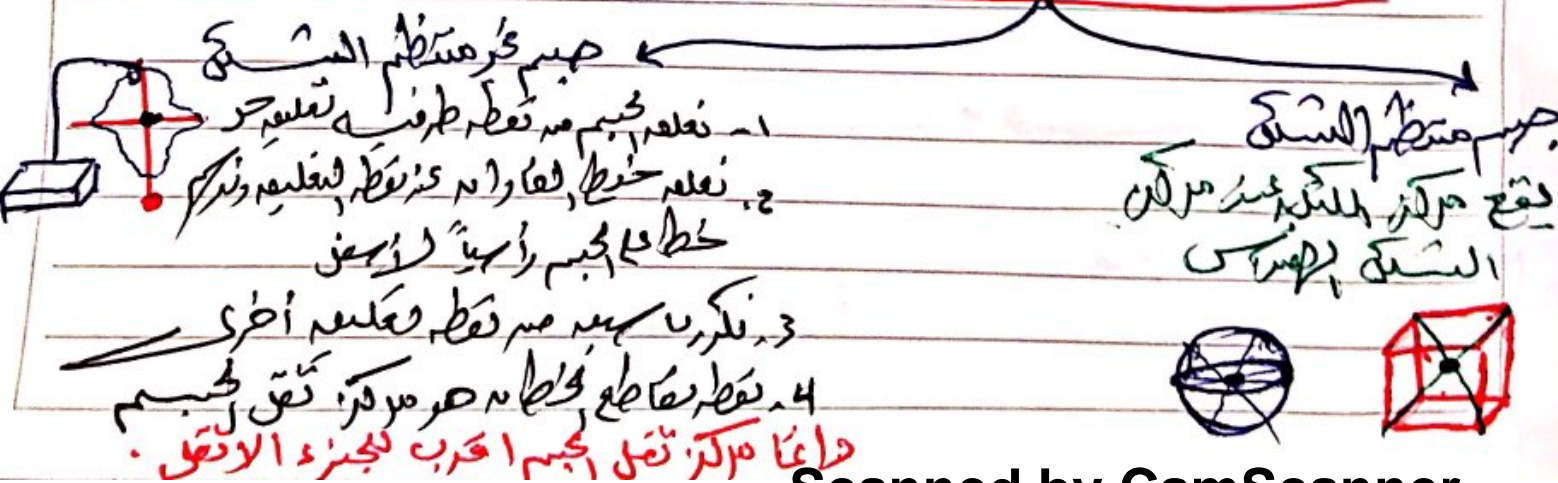 جسم منتظم الشكل
يقع مركز الكتلة عند مركز
الشكل الهندسي
جسم غير منتظم الشكل
1- نعلق الجسم من نقطة طرفيه تعليق حر
2. نعلق خيط عند نقطة التعليق ونرسم
خط على الجسم رأسياً لأسفل
3. نكرر ما سبق من نقطة تعليق أخرى
4. نقطة تقاطع الخطان هو مركز ثقل الجسم
دائمًا مركز ثقل الجسم اقرب للجزء الاثقل.
Scanned by CamScanner